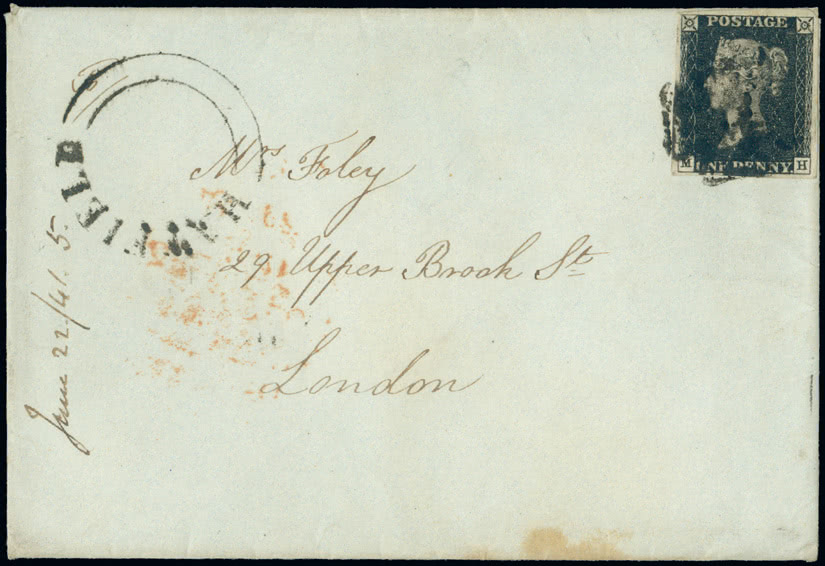 POSTAGE
M ONE PENNY H
Mrs Foley
29 Upper Brook St
London
June 22/41. 5.